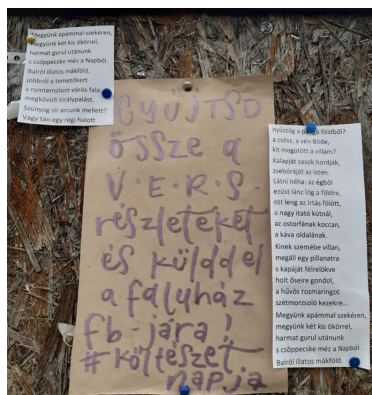 Megyünk apámmal szekéren,
megyünk két kis ökörrel,
harmat gurul utánunk
s csöppecske méz a Napból.
Balról illatos mákföld,
jobbról a temetőkert
s romtemplom vörös fala,
megkövült királypalást.
Szúnyog sír arcunk mellett?
Vagy tán egy régi halott
GYŰJTSD
össze a
V.E.R.S.
részleteket
és külddel
a faluház
fb-jára!
#költészet
napja
nyüszög a földből?
a csősz, a vén Böde,
kit megütött a villám?
Kalapját sasok hordják,
zsebóráját az isten.
Látni néha: az égből
ezüst lánc lóg a földre,
ott leng az Irtás fölött,
a nagy itató kútnál,
az ostorfának koccan,
a káva oldalának.
Kinek szemébe villan,
megáll egy pillanatra
s kapáját félrelökve
holt őseire gondol,
a hűvös rozmaringot
szétmorzsoló kezekre...
Megyünk apámmal szekéren,
megyünk két kis ökörrel,
harmat gurul utánunk
s csöppecske méz a Napból.
Balról illatos mákföld,